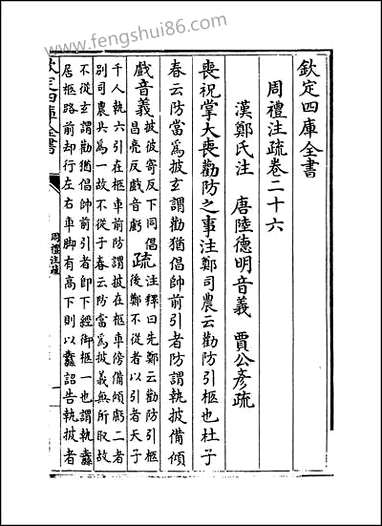 www.fengshui86.com
欽定四庫全書
周禮注疏卷二十六
漢鄭氏注 唐陸德明音義 賈公彦疏
喪祝掌大喪勸防之事注鄭司農云勸防引柩也杜子
春云防當為披玄謂勸猶倡帥前引者防謂執披備傾
戲音義
披彼寄反下同倡
昌亮反戲音虧
疏
注釋曰先鄭云勸防引柩
後鄭不從者以引者天子
千人執六引在柩車前防謂披在柩車傍備傾虧二者
别司農共為一故不從子春云防當為披義無所取故
不從玄謂勸猶倡帥前引者即下經御柩一也謂執纛
居柩路前却行左右車脚有高下則以纛詔告執披者
欽定四庫全書
周禮注疏